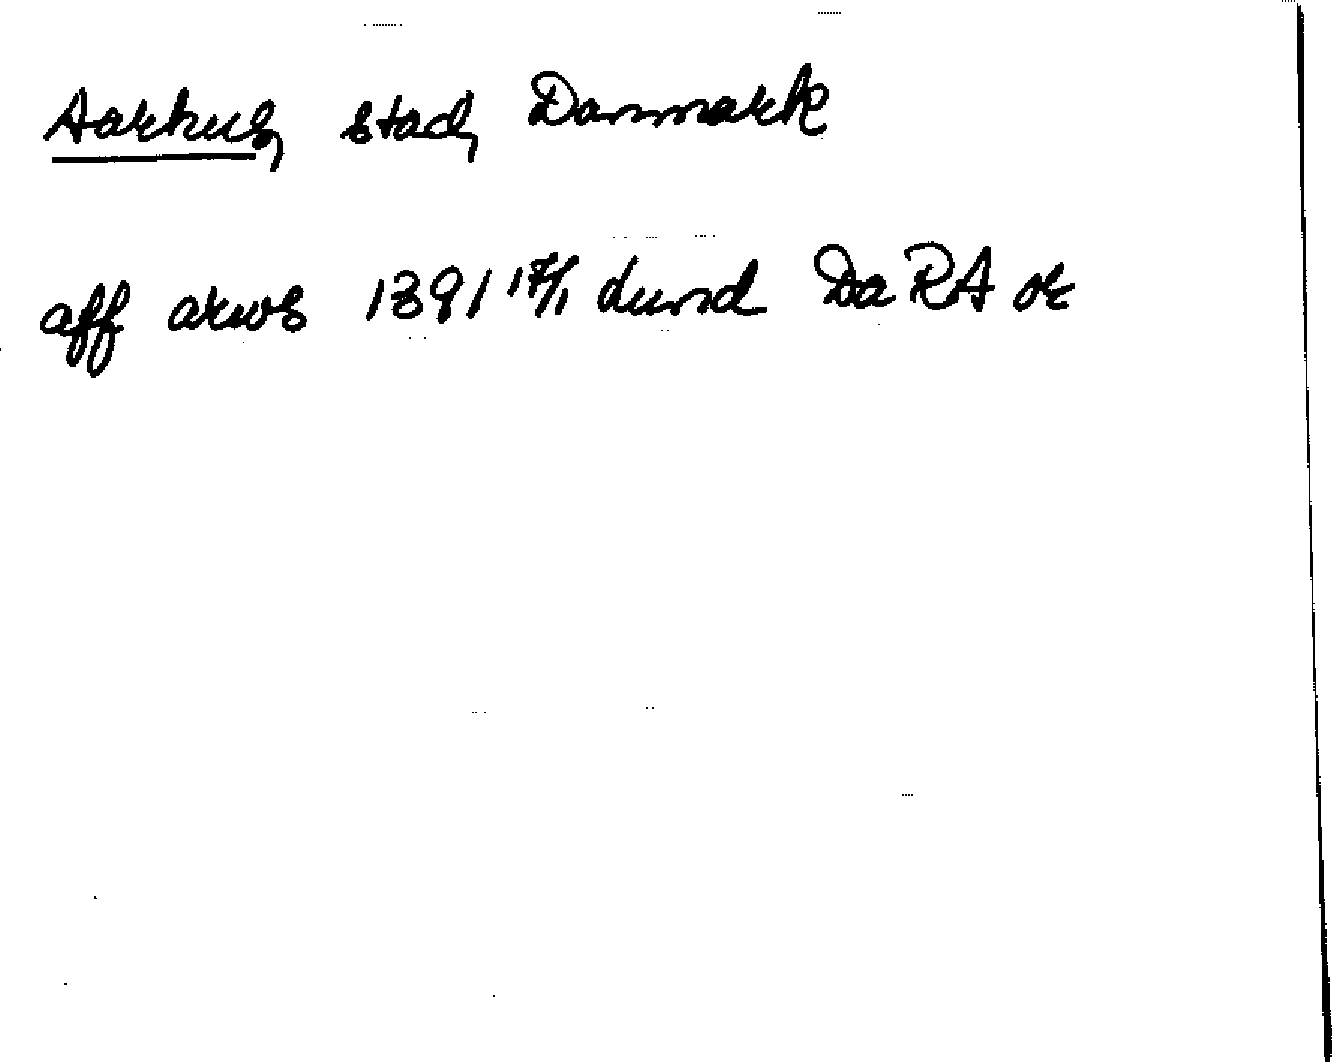 Aarhus, stad, Danmark
aff arws 1391 17/1 Lund DaRA or